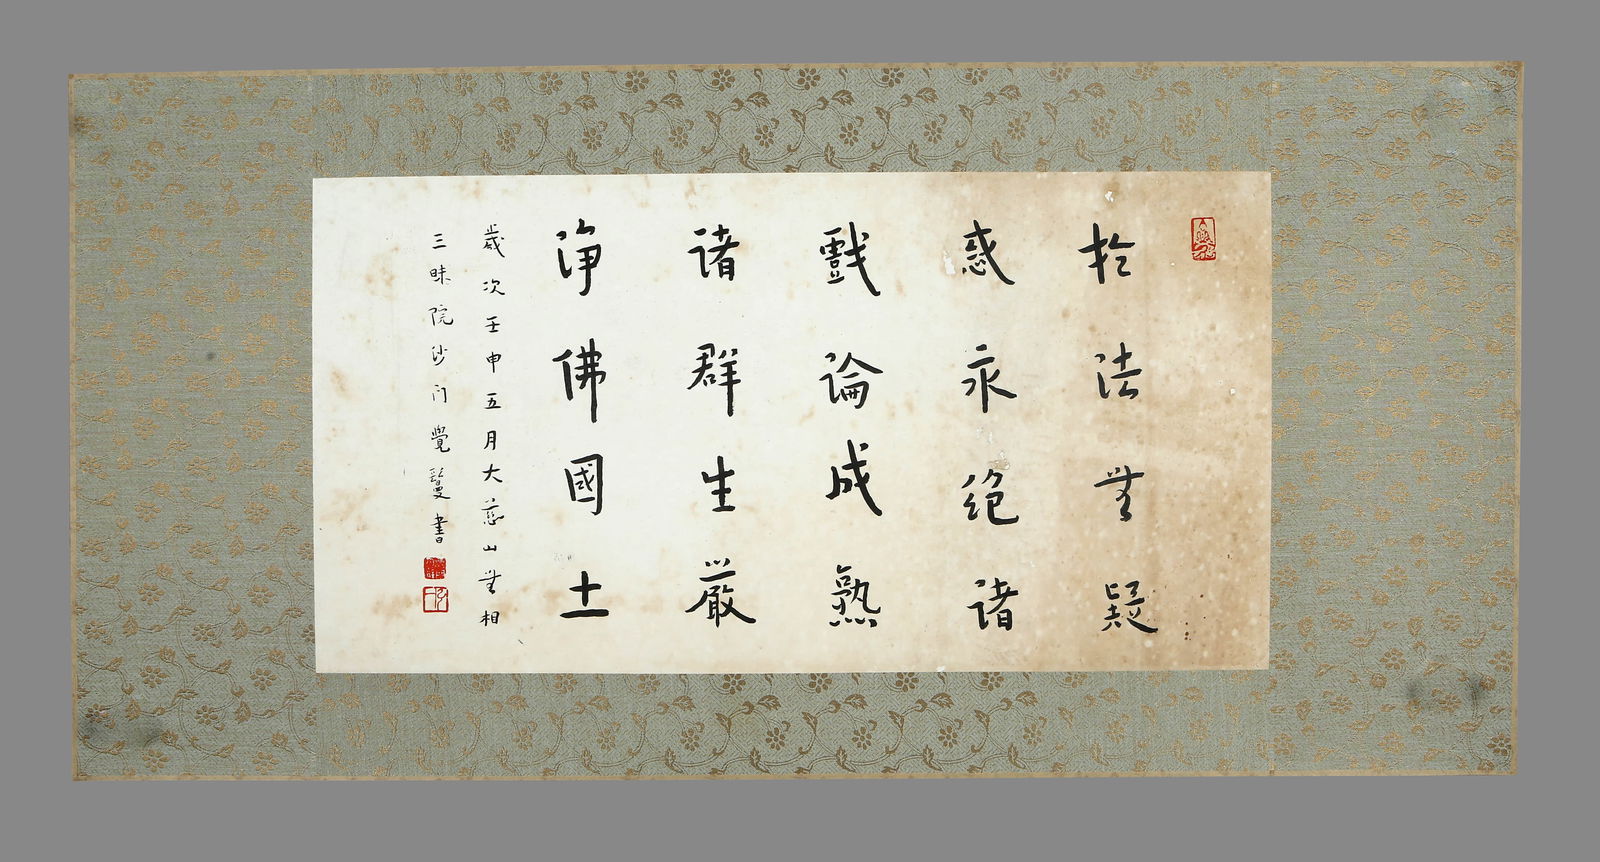 於法無疑
惑永絕諸
戲論成熟
諸群生嚴
淨佛國土
歲次壬申五月大慈山無相
三昧院沙门覺鬘書